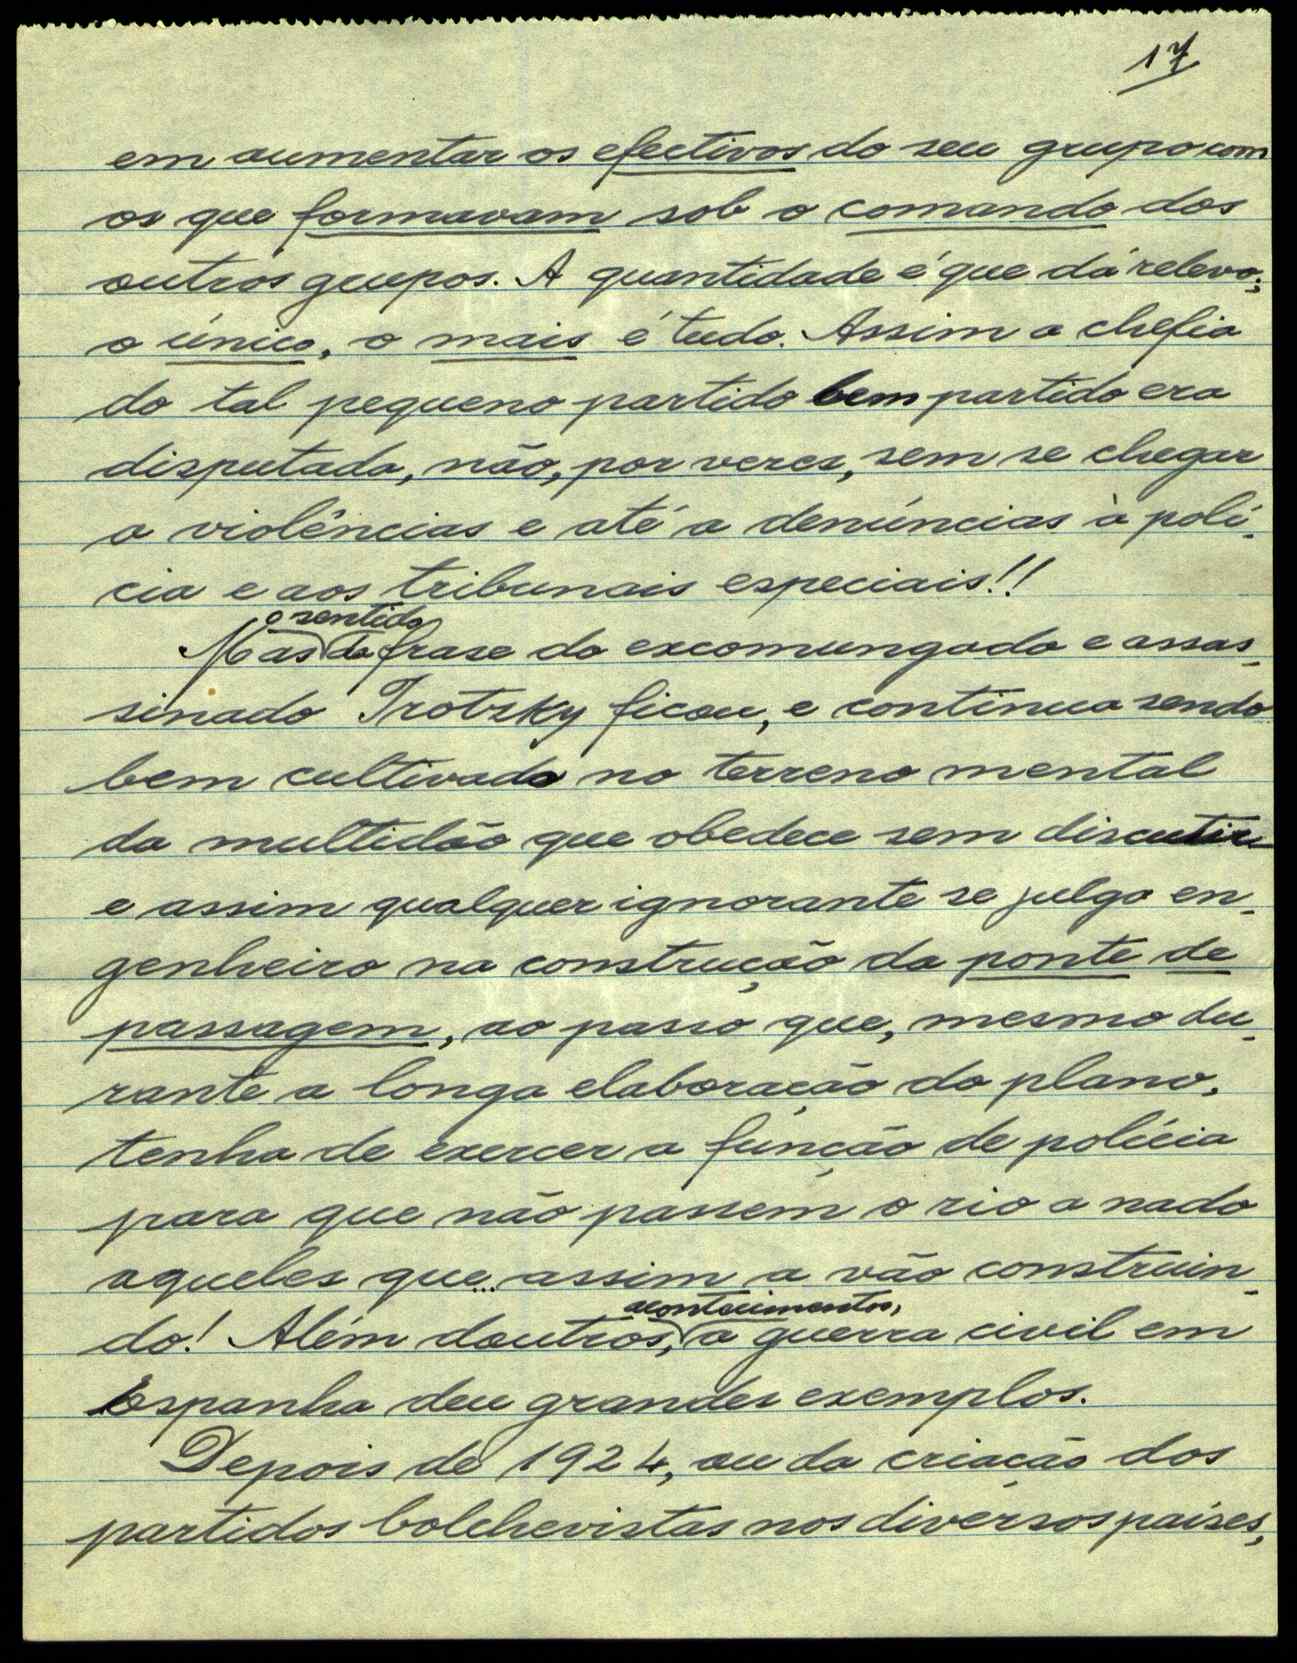 17
em aumentar os efectivos do seu grupo com
os que formavam sob o comando dos
outros grupos. A quantidade é que dá relevo;
o único, o mais é tudo. Assim a chefia
do tal pequeno partido bem partido era
disputada, não, por vezes, sem se chegar
a violências e até a denúncias à polí-
cia e aos tribunais especiais!!
o sentido
Mas da frase do excomungado e assas-
sinado Trotzky ficou, e continua sendo
bem cultivado no terreno mental
da multidão que obedece sem discutir
e assim qualquer ignorante se julga en-
genheiro na construção da ponte de
passagem, ao passo que, mesmo du-
rante a longa elaboração do plano,
tenha de exercer a função de polícia
para que não passem o rio a nado
aqueles que... assim a vão construin-
acontecimentos,
do! Além doutros, a guerra civil em
Espanha deu grandes exemplos.
Depois de 1924, ou da criação dos
partidos bolchevistas nos diversos países,